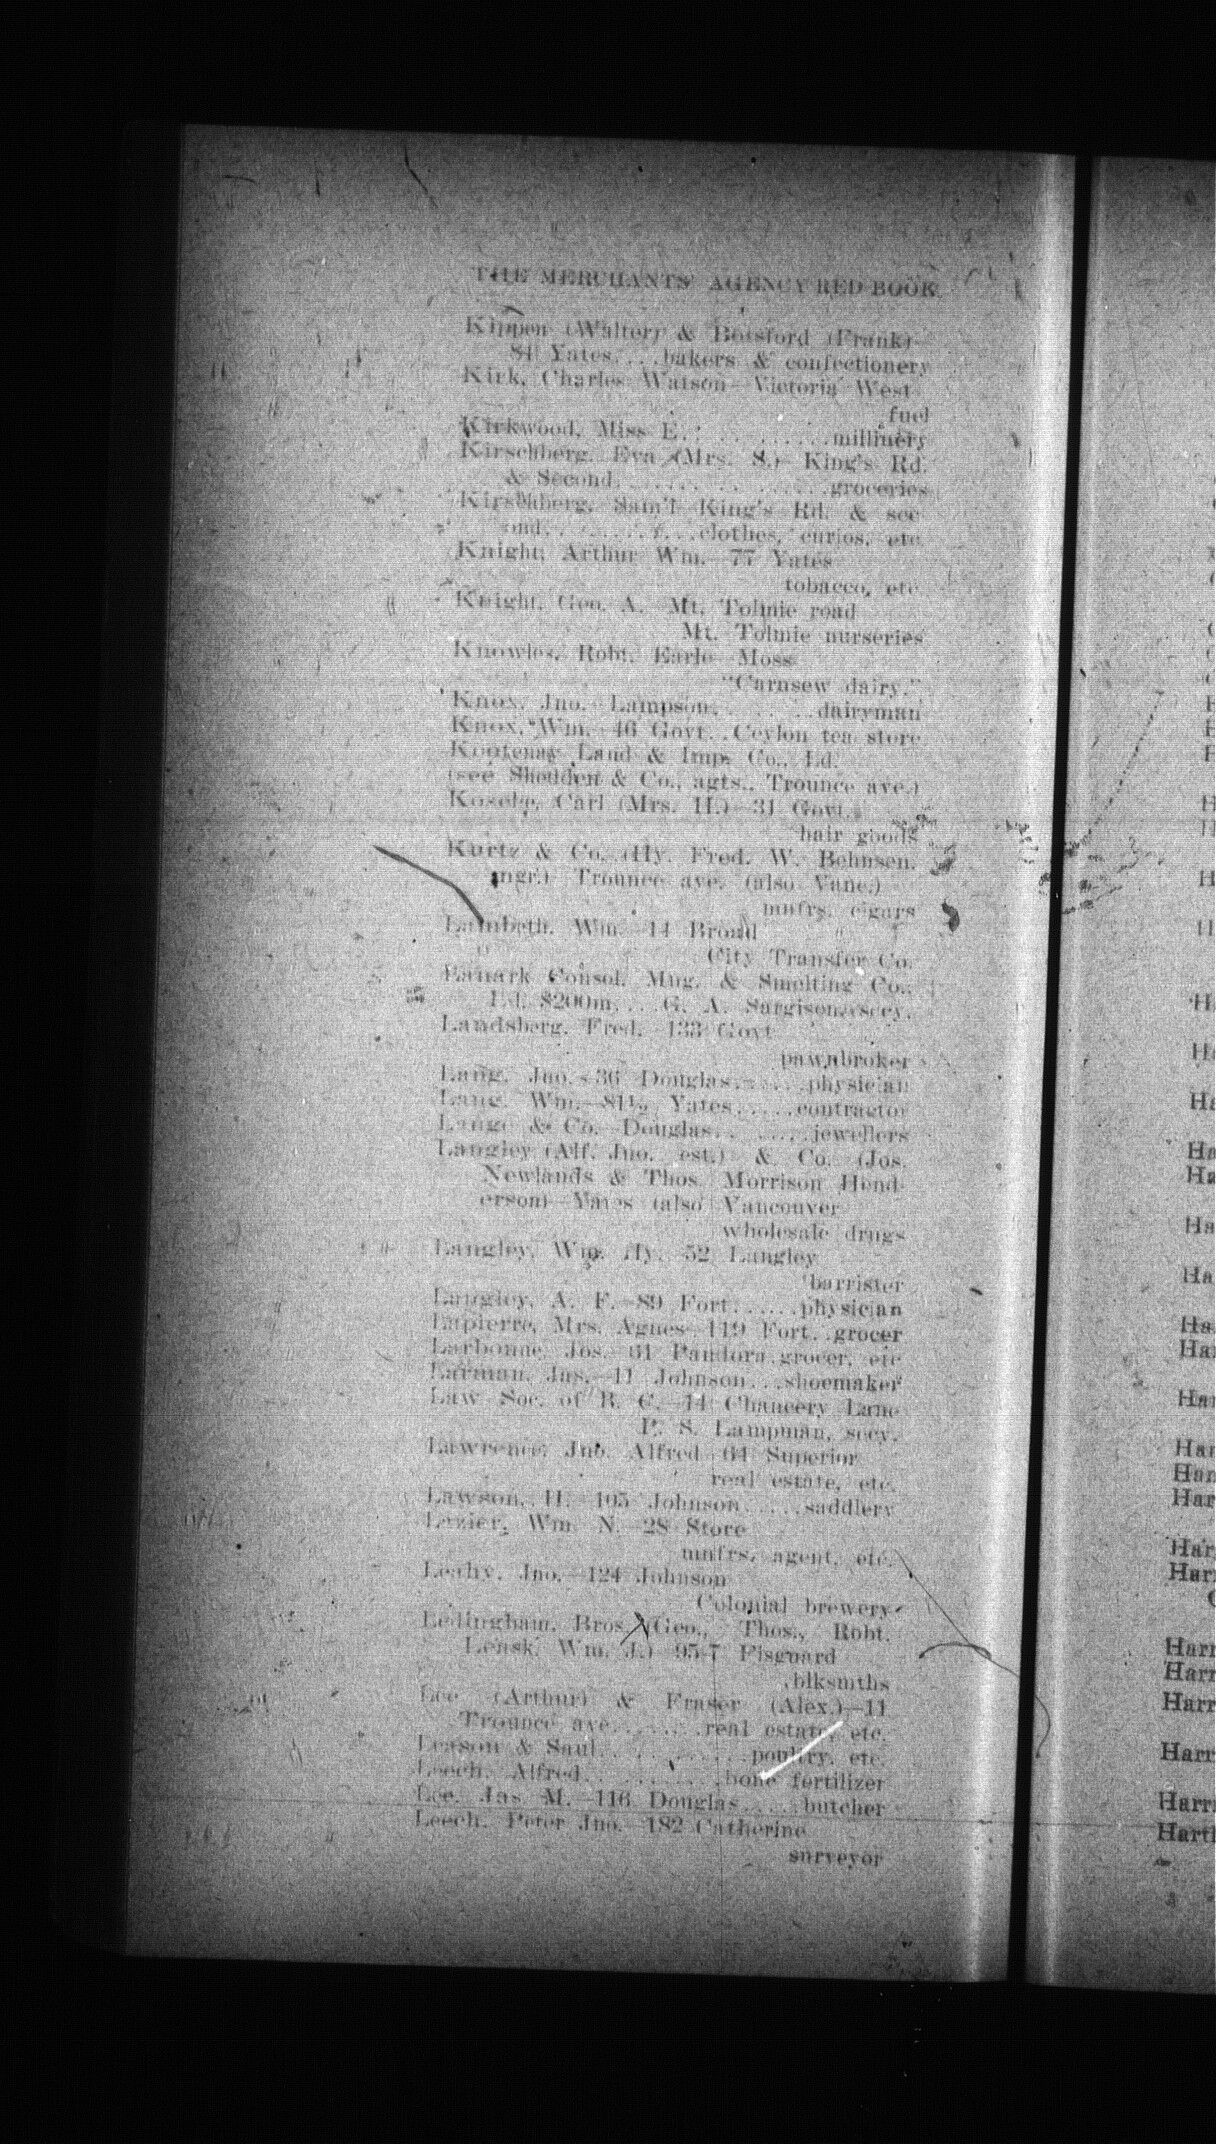 THE MERCHANTS' AGENCY RED BOOK
Kippen (Walter) & Botsford (Frank)—
84 Yates....bakers & confectionery
Kirk, Charles Watson—Victoria West
fuel
Kirkwood, Miss E.............millinery
Kirschberg, Eva (Mrs. S.)—King's Rd.
& Second..................groceries
Kirschberg, Sam'l—King's Rd. & sec-
ond............clothes, curios, etc.
Knight, Arthur Wm.—77 Yates
tobacco, etc.
Knight, Geo. A.—Mt. Tolmie road
Mt. Tolmie nurseries
Knowles, Robt. Earle—Moss
"Carnsew dairy."
Knox, Jno.—Lampson.........dairyman
Knox, Wm.—46 Govt..Ceylon tea store
Kootenay Land & Imp. Co., Ld.
(see Shedden & Co., agts., Trounce ave.)
Kosche, Carl (Mrs. H.)—31 Govt.
hair goods
Kurtz & Co. (Hy. Fred. W. Behnsen,
mgr.) Trounce ave. (also Vanc.)
mnfrs. cigars
Lambeth, Wm.—14 Broad
City Transfer Co.
Lanark Consol. Mng. & Smelting Co.,
Ld. $200m....G. A. Sargison, secy.
Landsberg, Fred.—133 Govt
pawnbroker
Lang, Jno.—36 Douglas.......physician
Lang, Wm.—81½ Yates.....contractor
Lange & Co.—Douglas........jewellers
Langley (Alf. Jno. est.) & Co. (Jos.
Newlands & Thos. Morrison Hend-
erson)—Yates (also Vancouver
wholesale drugs
Langley, Wm. Hy.—52 Langley
barrister
Langley, A. F.—89 Fort......physician
Lapierre, Mrs. Agnes—119 Fort..grocer
Larbonne, Jos.—61 Pandora.grocer, etc
Larman, Jas.—11 Johnson...shoemaker
Law Soc. of B. C.—14 Chancery Lane
P. S. Lampman, secy.
Lawrence, Jno. Alfred—64 Superior
real estate, etc.
Lawson, H.—105 Johnson.....saddlery
Lezier, Wm. N.—28 Store
mnfrs. agent, etc.
Leahy, Jno.—124 Johnson
Colonial brewery
Ledingham, Bros. (Geo., Thos., Robt.
Leask, Wm. J.) 95-7 Fisguard
blksmiths
Lee (Arthur) & Fraser (Alex.)—11
Trounce ave........real estate, etc.
Leason & Saul............poultry, etc.
Leech, Alfred...........bone fertilizer
Lee, Jas M.—116 Douglas.....butcher
Leech, Peter Jno.—182 Catherine
surveyor